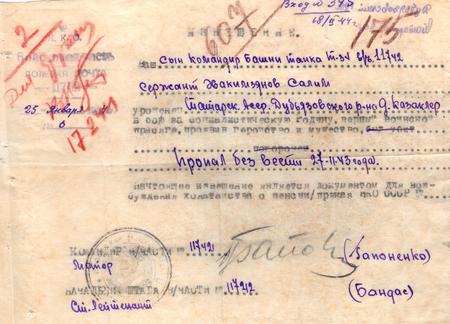 2
607
Вход № 547
68/II-44г.
175
ИЗВЕЩЕНИЕ
Н.К.О.
ПОЛЕВАЯ ПОЧТА
25 января
17.2.44
Ваш сын командир башни танка Т-34 в/ч. 11742
Сержант Звакильзянов Салим
уроженец Татарск. Асср. Дубъязовского р-на д. Казаклер
в бою за социалистическую Родину, верный воинской
присяге, проявив геройство и мужество, был убит
похоронен
Пропал без вести 27-11-43 года.
Настоящее извещение является документом для воз-
буждения ходатайства о пенсии/приказ НКО СССР №
КОМАНДИР В/ЧАСТИ № 11742
Майор
(Гапоненко)
НАЧАЛЬНИК ШТАБА В/ЧАСТИ № 11742
Ст. Лейтенант
(Бандас)